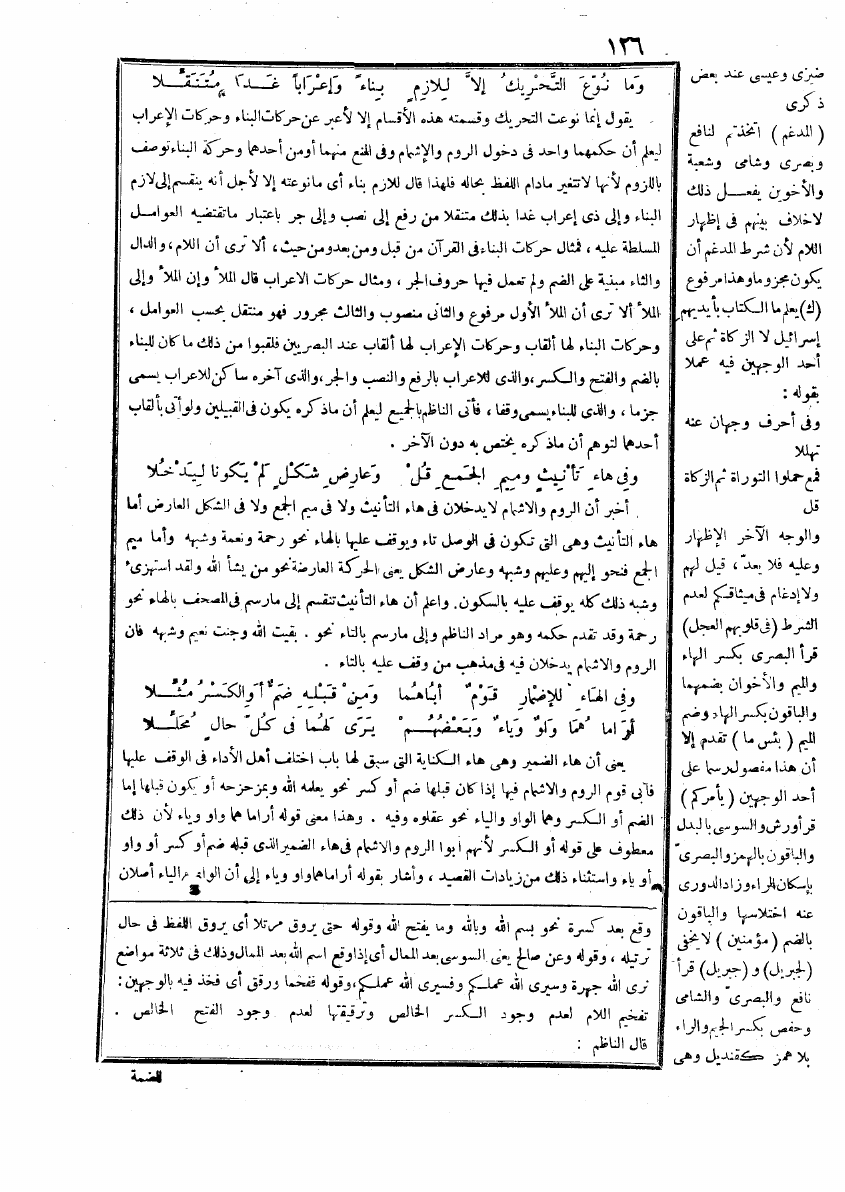 ١٣٦
وَما نُوِّعَ التَّحْرِيكُ إلاَّ لِلازِمٍ بِناءً وَإعْرَاباً غَدَا مُتَنَقِّلا
يقول إنما نوعت التحريك وقسمته هذه الأقسام إلا لأعبر عن حركات البناء وحركات الإعراب
ليعلم أن حكمهما واحد فى دخول الروم والإشمام وفى المنع منهما أو من أحدهما وحركة البناء توصف
باللزوم لأنها لا تتغير مادام اللفظ بحاله فلهذا قال للازم بناء أى ما نوعته إلا لأجل أنه ينقسم إلى لازم
البناء وإلى ذى إعراب غدا بذلك متنقلا من رفع إلى نصب وإلى جر باعتبار ما تقتضيه العوامل
المسلطة عليه ، فمثال حركات البناء فى القرآن من قبل ومن بعد ومن حيث، ألا ترى أن اللام ، والدال
والثاء مبنية على الضم ولم تعمل فيها حروف الجر ، ومثال حركات الاعراب قال الملأ وإن الملأ وإلى
الملأ ألا ترى أن الملأ الأول مرفوع والثانى منصوب والثالث مجرور فهو منتقل بحسب العوامل ،
وحركات البناء لها ألقاب وحركات الإعراب لها ألقاب عند البصريين فلقبوا من ذلك ما كان للبناء
بالضم والفتح والكسر، والذى للاعراب بالرفع والنصب والجر، والذى آخره ساكن للاعراب يسمى
جزما ، والذى للبناء يسمى وقفا ، فأتى الناظم بالجميع ليعلم أن ما ذكره يكون فى القبيلين ولو أتى بألقاب
أحدهما لتوهم أن ما ذكره يختص به دون الآخر .
وفى هاءِ تأنِيثٍ ومِيمِ الجَمعِ قُلْ وَعارِضِ شَكْلٍ لَمْ يَكُونا لِيَدْخُلا
أخبر أن الروم والاشمام لا يدخلان فى هاء التأنيث ولا فى ميم الجمع ولا فى الشكل العارض أما
هاء التأنيث وهى التى تكون فى الوصل تاء ويوقف عليها بالهاء نحو رحمة ونعمة وشبهه وأما ميم
الجمع فنحو إليهم وعليهم وشبهه وعارض الشكل يعنى الحركة العارضة نحو من يشأ الله ولقد استهزىء
وشبه ذلك كله يوقف عليه بالسكون. واعلم أن هاء التأنيث تنقسم إلى ما رسم فى المصحف بالهاء نحو
رحمة وقد تقدم حكمه وهو مراد الناظم وإلى ما رسم بالتاء نحو . بقيت الله وجنت نعيم وشبهه فان
الروم والاشمام يدخلان فيه فى مذهب من وقف عليه بالتاء .
وفِى الهَاءِ لِلإضْمارِ قَوْمٌ أبَاهُما وَمِنْ قَبْلِهِ ضَمٌّ أوِ الكَسْرُ مُثِّلا
أوْ اما هُمَا وَاوٌ وَياءٌ وَبَعْضُهُمْ يَرَى لَهُما فِى كُلِّ حالٍ مُحَلِّلا
يعنى أن هاء الضمير وهى هاء الكناية التى سبق لها باب اختلف أهل الأداء فى الوقف عليها
فأبى قوم الروم والاشمام فيها إذا كان قبلها ضم أو كسر نحو يعلمه الله وبمزحزحه أو يكون قبلها إما
الضم أو الكسر وهما الواو والياء نحو عقلوه وفيه . وهذا معنى قوله أو اما هما واو وياء لأن ذلك
معطوف على قوله أو الكسر لأنهم أبوا الروم والاشمام فى هاء الضمير الذى قبله ضم أو كسر أو واو
أو ياء واستثناء ذلك من زيادات القصيد ، وأشار بقوله أو اما هما واو وياء إلى أن الواو والياء أصلان
وقع بعد كسرة نحو بسم الله وبالله وما يفتح الله وقوله حتى يروق مرتلا أى يروق اللفظ فى حال
ترتيله ، وقوله وعن صالح يعنى السوسى بعد الممال أى إذا وقع اسم الله بعد الممال وذلك فى ثلاثة مواضع
نرى الله جهرة وسيرى الله عملكم وفسيرى الله عملكم، وقوله ففخما ورقق أى فخذ فيه بالوجهين :
تفخيم اللام لعدم وجود الكسر الخالص وترقيقها لعدم وجود الفتح الخالص .
قال الناظم :
للضمة
ضيزى وعيسى عند بعض
ذكرى
( المدغم ) اتخذتم لنافع
وبصرى وشامى وشعبة
والأخوين يفعل ذلك
لا خلاف بينهم فى إظهار
اللام لأن شرط المدغم أن
يكون مجزوما وهذا مرفوع
(ك) يعلم ما الكتاب بأيديهم
إسرائيل لا الزكاة ثم على
أحد الوجهين فيه عملا
بقوله :
وفى أحرف وجهان عنه
تهللا
فمع حملوا التوراة ثم الزكاة
قل
والوجه الآخر الإظهار
وعليه فلا يعد، قيل لهم
ولا إدغام فى ميثاقكم لعدم
الشرط (فى قلوبهم العجل)
قرأ البصرى بكسر الهاء
والميم والأخوان بضمهما
والباقون بكسر الهاء وضم
الميم ( بئس ما ) تقدم إلا
أن هذا مفصول رسما على
أحد الوجهين ( يأمركم )
قرأ ورش والسوسى بالبدل
والباقون بالهمز والبصرى
بإسكان الراء وزاد الدورى
عنه اختلاسها والباقون
بالضم ( مؤمنين ) لا يخفى
(لجبريل) و (جبريل) قرأ
نافع والبصرى والشامى
وحفص بكسر الجيم والراء
بلا همز كقنديل وهى